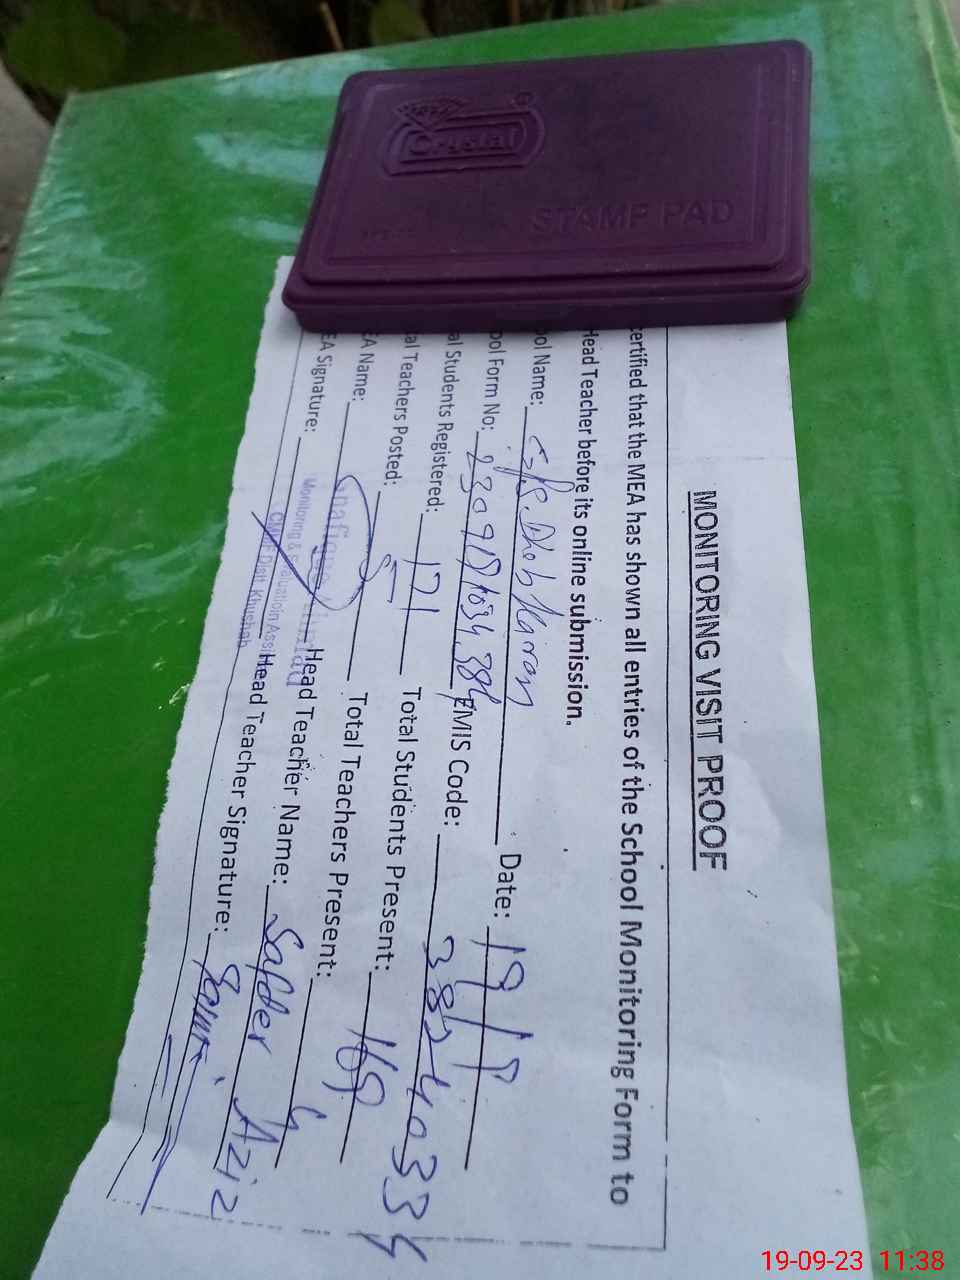 Crystal
STAMP PAD
MONITORING VISIT PROOF
certified that the MEA has shown all entries of the School Monitoring Form to
Head Teacher before its online submission.
ool Name: Date: 19/9
ool Form No: EMIS Code: 38240334
al Students Registered: 171 Total Students Present: 169
tal Teachers Posted: 5 Total Teachers Present: 4
EA Name: Head Teacher Name: Safder Aziz
EA Signature: Head Teacher Signature:
Monitoring & Evaluatioin Assi
Distt Khushab
19-09-23 11:38